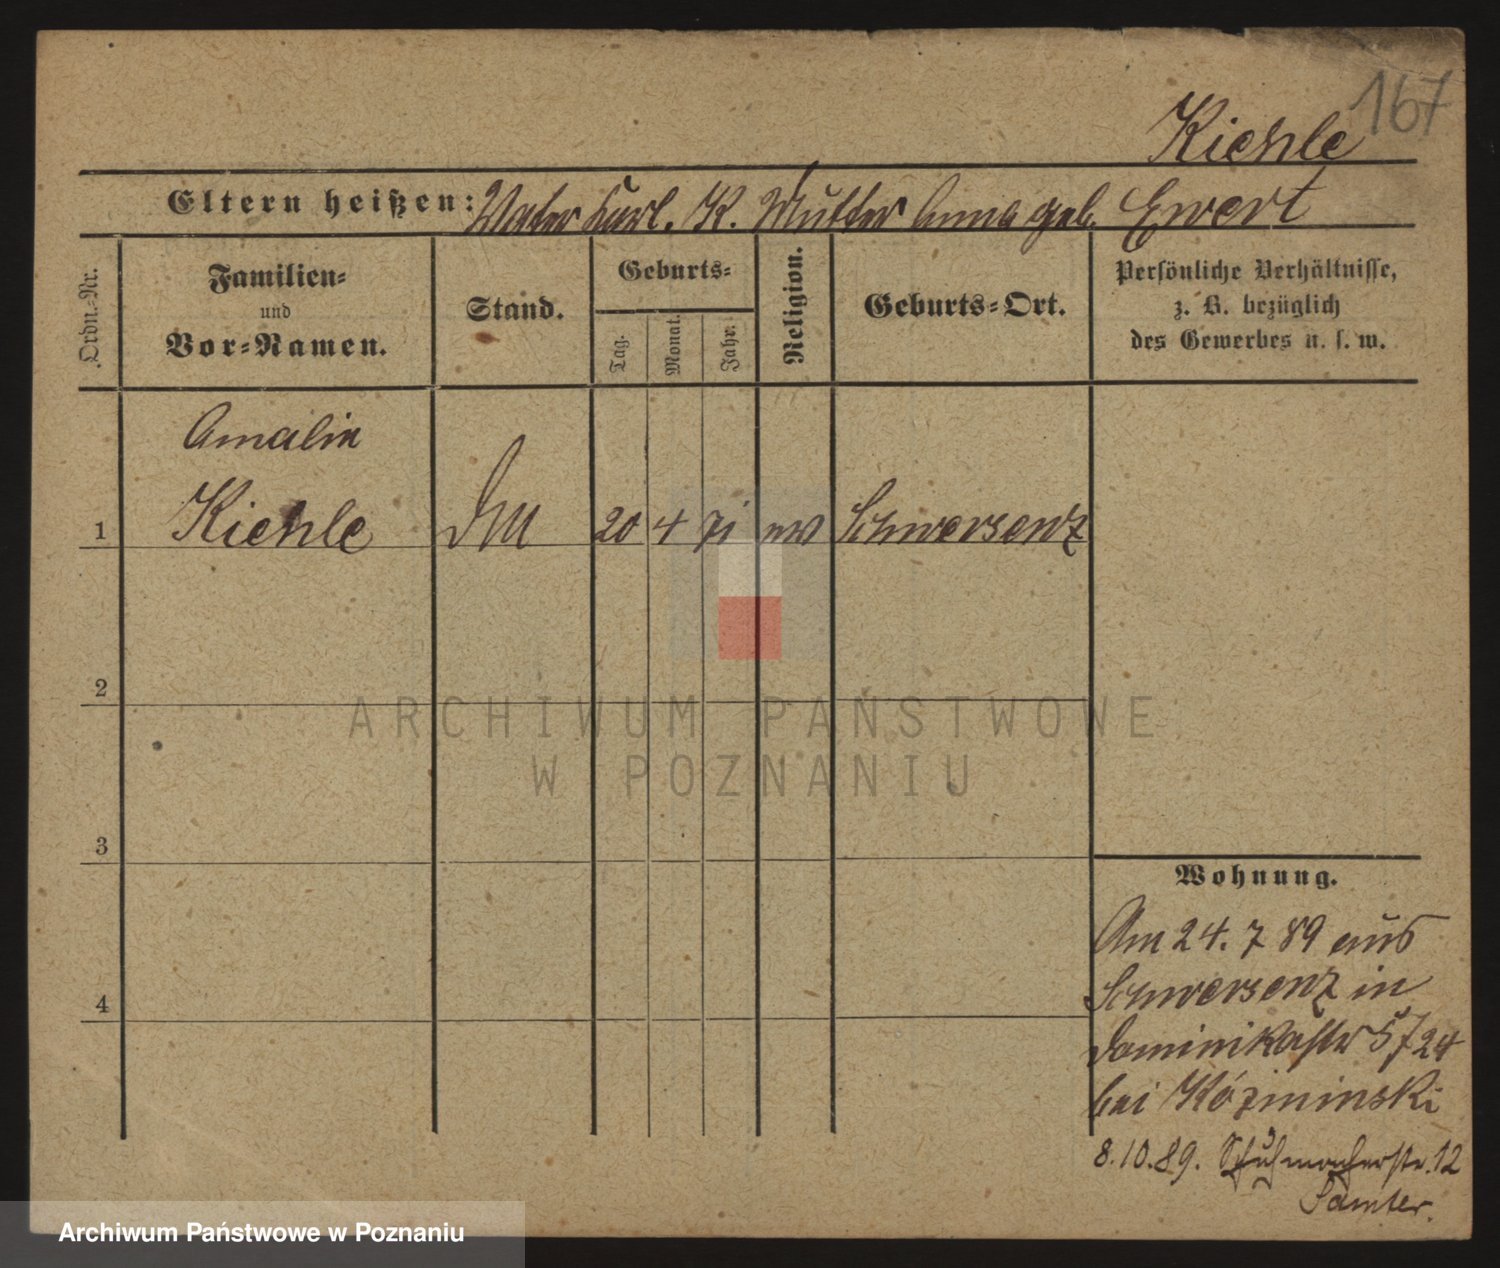 167
Kiehle
Eltern heißen: Vater Karl. K. Mutter Anna geb. Ewert
Ordn.-Nr.
Familien-
und
Vor-Namen.
Stand.
Geburts-
Tag.
Monat.
Jahr.
Religion.
Geburts-Ort.
Persönliche Verhältnisse,
z. B. bezüglich
des Gewerbes u. s. w.
Amalie
1 Kiehle 20 4 71 ev Schwersenz
2
3
4
ARCHIWUM PAŃSTWOWE
W POZNANIU
Wohnung.
Am 24. 7 89 aus
Schwersenz in
Dominikastr 5/7 24
bei Kózminski
8.10.89. Schuhmacherstr. 12
Samter.
Archiwum Państwowe w Poznaniu